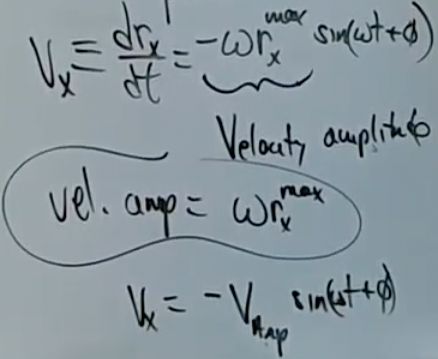 Vx ≡ drx/dt = -ωrx^max sin(ωt+φ)
Velocity amplitude
vel. amp = ωrx^max
Vx = -VAmp sin(ωt+φ)